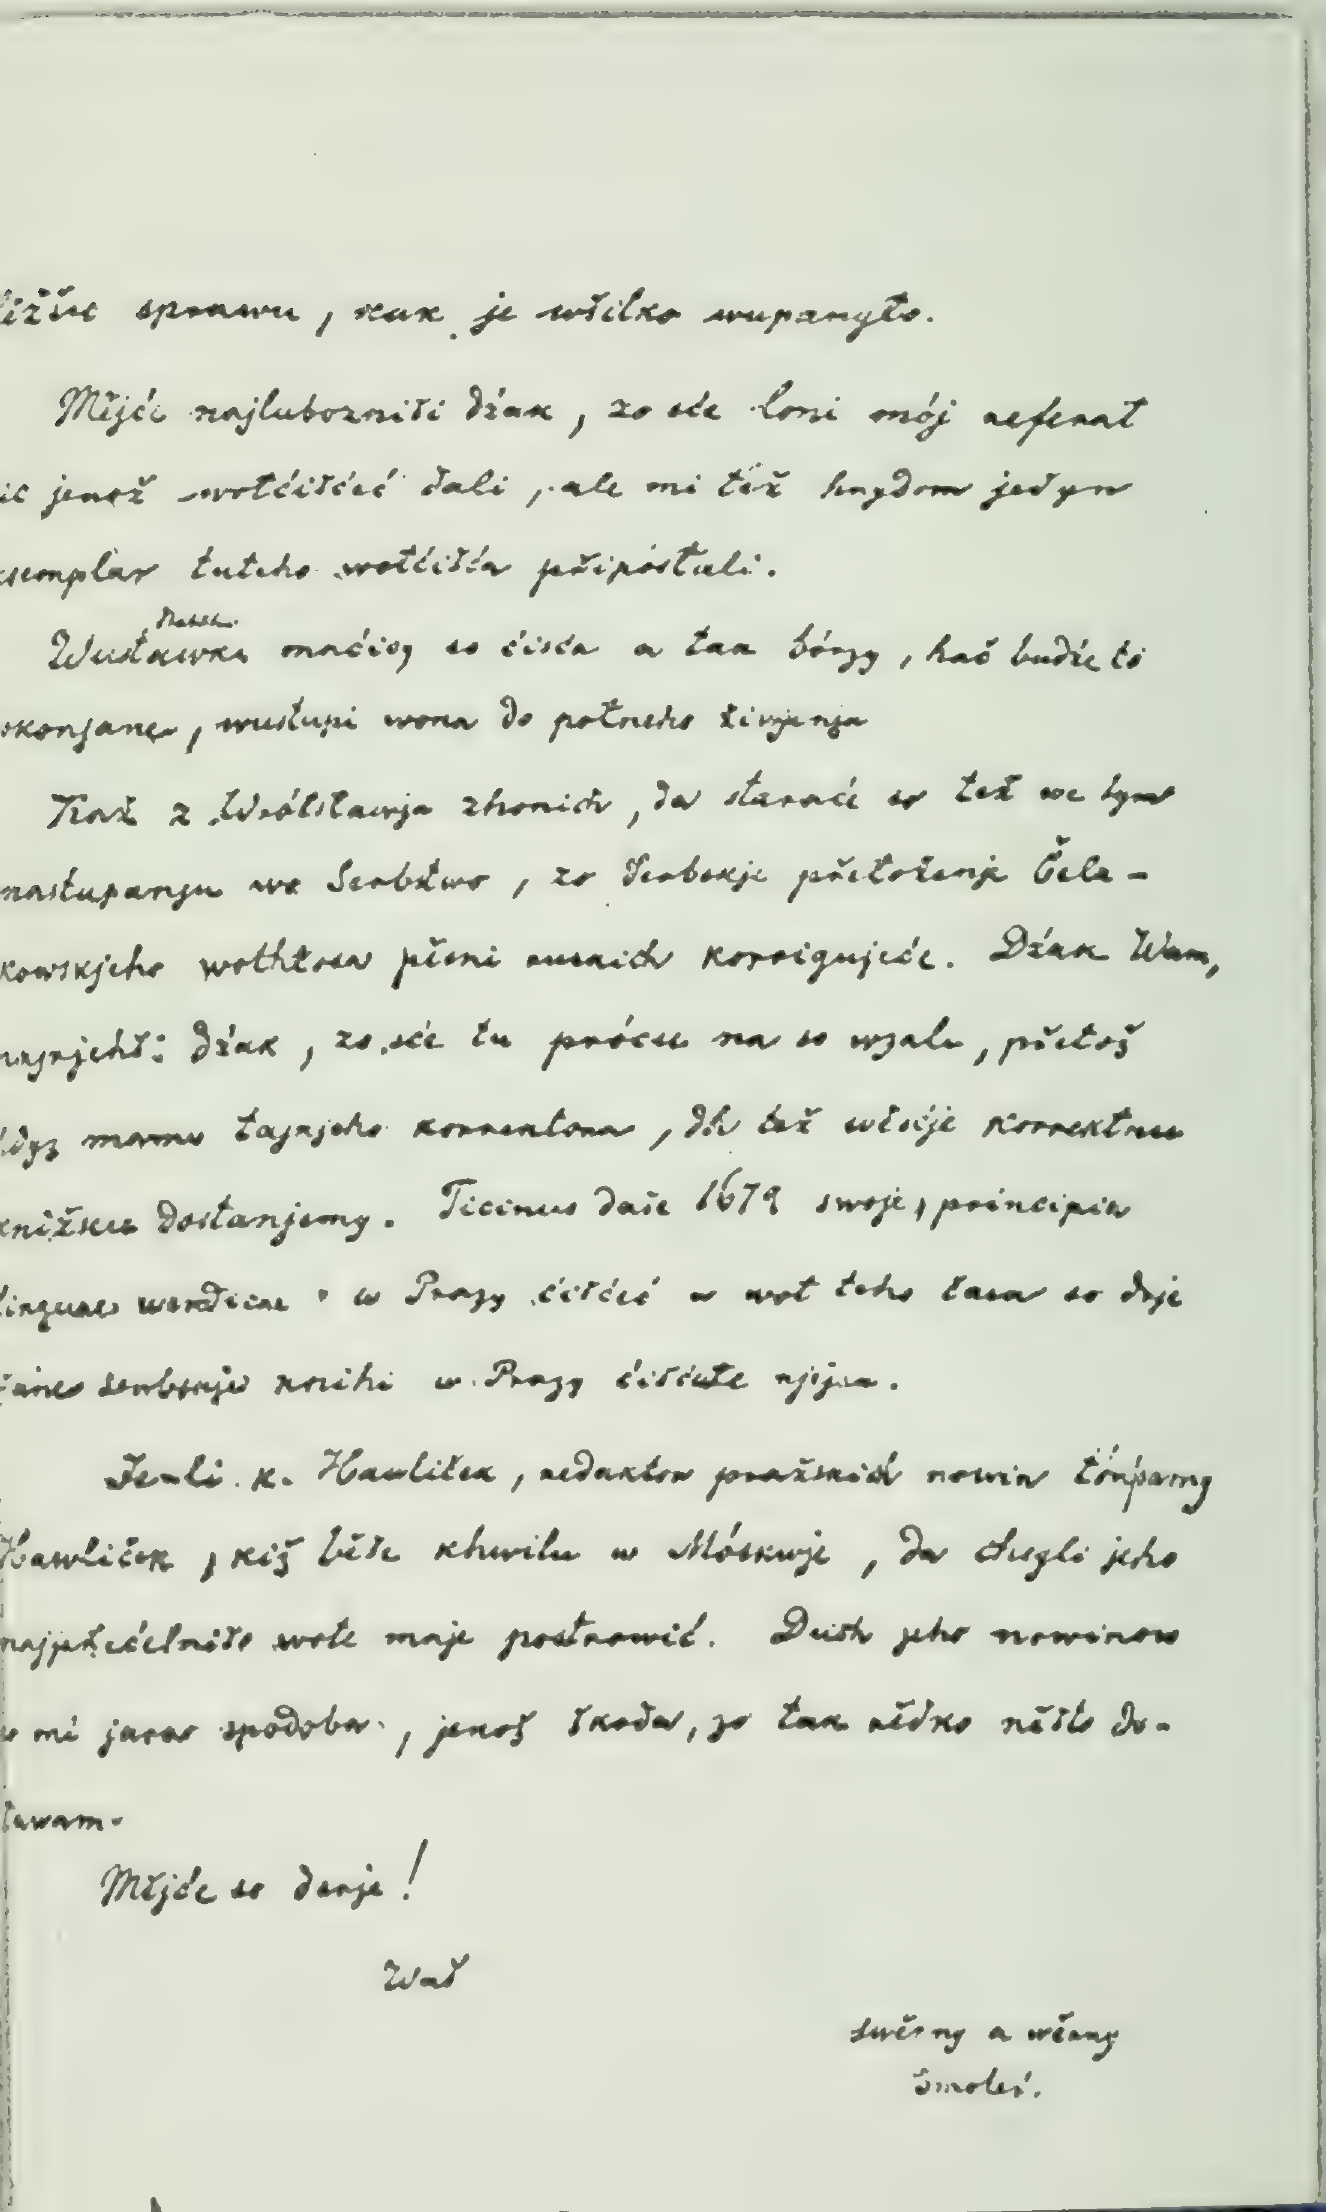 sprawu, kak je wšilko wupanyło.
Mějće najlubozniši dźak, zo sće loni mój referat
jenož wotćišćeć dali, ale mi též hnydom jedyn
tuteho wotćišća připósłali.
Wustawki maćicy so ćišća a tak bórzy, hač budźe to
wustupi wona do połneho žiwjenja
Kaž z Wrótsławja zhonich, da staraće so tež we tym
nastupanju wo Serbstwo, zo serbskje přełoženje Čela-
kowskjeho wothłosa pěsni ruskich korrigujeće. Dźak Wam,
dźak, zo sće tu prócu na so wzali, přetož
mamy tajkjeho korrektora, da tež wěsćje korrektnu
knižku dostanjemy. Ticinus daše 1679 swoje „principia
linguae wendicae" w Prazy ćišćeć a wot teho časa so dyje
žane serbskje knihi w Prazy ćišćałe njejsu.
Jeli k. Hawliček, redaktor pražskich nowin tónsamy
Hawliček, kiž běše khwilu w Móskwje, da chcyli jeho
najpřećelnišo wote mnje postrowić. Duch jeho nowinow
mi jara spodoba, jenož škoda, zo tak rědko něšto do-
stawam.
Mějće so derje!
Waš
swěrny a wěrny
Smoleŕ.